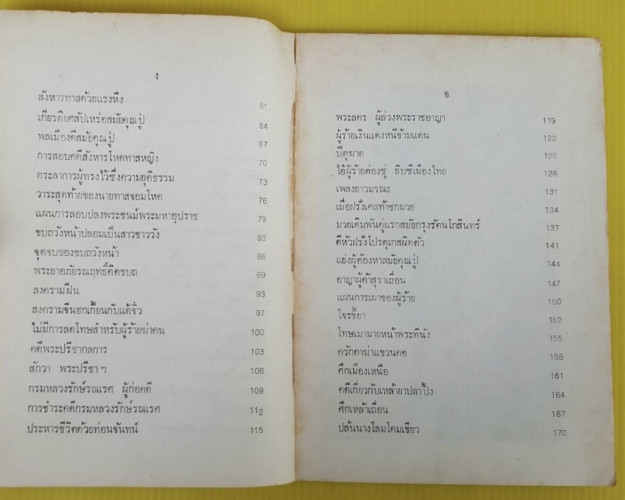 ง
สังหารทาสด้วยแรงหึง 61
เกียรติยศสัปเหร่อสมัยคุณปู่ 64
พลเมืองดีสมัยคุณปู่ 67
การสอบคดีสังหารโหดทาสหญิง 70
ตระลาการผู้ทรงไว้ซึ่งความยุติธรรม 73
วาระสุดท้ายของนายทาสจอมโหด 76
แผนการลอบปลงพระชนม์พระมหาอุปราช 79
ขบถวังหน้าปลอมเป็นสาวชาววัง 83
จุดจบของขบถวังหน้า 86
พระยาอภัยรณฤทธิ์คิดขบถ 89
สงครามฝิ่น 93
สงครามจีนฮกเกี้ยนกับแต้จิ๋ว 97
ไม่มีการลดโทษสำหรับผู้ร้ายฆ่าคน 100
คดีพระปรีชากลการ 103
สักวา พระปรีชา ฯ 106
กรมหลวงรักษ์รณเรศ ผู้ก่อคดี 109
การชำระคดีกรมหลวงรักษ์รณเรศ 112
ประหารชีวิตด้วยท่อนจันทน์ 115
จ
พระลคร ผู้ล่วงพระราชอาญา 119
ผู้ร้ายเงินแดงหนีข้ามแดน 122
ปิตุฆาต 125
ไอ้ผู้ร้ายต้องชู่ ยิบซีเมืองไทย 128
เพลงยาวมรณะ 131
เมื่อฝรั่งเคลท้าชกมวย 134
มวยเดิมพันคู่แรกสมัยกรุงรัตนโกสินทร์ 137
ตีหัวฝรั่งโปรตุเกสผิดตัว 141
แย่งผู้ต้องหาสมัยคุณปู่ 144
อาญาผู้ค้าสุราเถื่อน 147
แผนการเผาของผู้ร้าย 150
โจรขี้ยา 152
โทษเมามายหน้าพระที่นั่ง 155
ควักตาผ่าแขวนคอ 158
ศึกเมืองเหนือ 161
คดีเกี่ยวกับเหล้ายาปลาปิ้ง 164
ศึกเหล้าเถื่อน 167
ปล้นนางโลมโคมเขียว 170